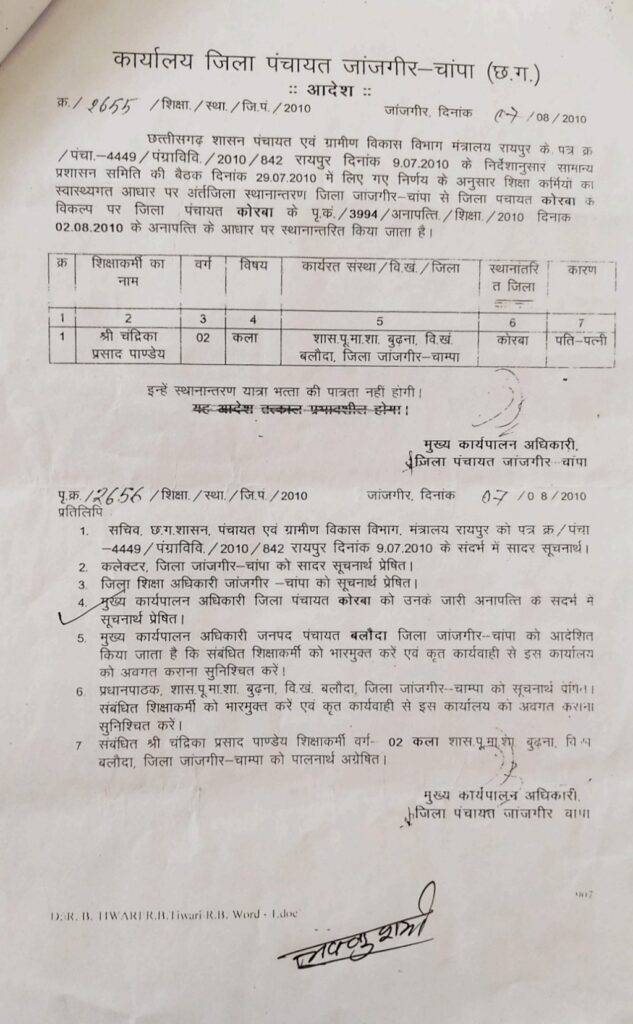 कार्यालय जिला पंचायत जांजगीर–चांपा (छ.ग.)
:: आदेश ::
क्र./2655/शिक्षा./स्था./जि.पं./2010 जांजगीर, दिनांक 07/08/2010
छत्तीसगढ़ शासन पंचायत एवं ग्रामीण विकास विभाग मंत्रालय रायपुर के पत्र क्र
/पंचा.–4449/पंग्राविवि./2010/842 रायपुर दिनांक 9.07.2010 के निर्देशानुसार सामान्य
प्रशासन समिति की बैठक दिनांक 29.07.2010 में लिए गए निर्णय के अनुसार शिक्षा कर्मियों का
स्वास्थ्यगत आधार पर अंर्तजिला स्थानान्तरण जिला जांजगीर–चांपा से जिला पंचायत कोरबा के
विकल्प पर जिला पंचायत कोरबा के पृ.कं./3994/अनापत्ति./शिक्षा./2010 दिनांक
02.08.2010 के अनापत्ति के आधार पर स्थानान्तरित किया जाता है।
क्र शिक्षाकर्मी का नाम वर्ग विषय कार्यरत संस्था/वि.खं./जिला स्थानांतरित जिला कारण
1 2 3 4 5 6 7
1 श्री चंद्रिका प्रसाद पाण्डेय 02 कला शास.पू.मा.शा. बुढ़ना, वि.खं. बलौदा, जिला जांजगीर-चाम्पा कोरबा पति-पत्नी
इन्हें स्थानान्तरण यात्रा भत्ता की पात्रता नहीं होगी।
यह आदेश तत्काल प्रभावशील होगा।
मुख्य कार्यपालन अधिकारी,
जिला पंचायत जांजगीर–चांपा
पृ.क्र./2656/शिक्षा./स्था./जि.पं./2010 जांजगीर, दिनांक 07/08/2010
प्रतिलिपि
1. सचिव, छ.ग.शासन, पंचायत एवं ग्रामीण विकास विभाग, मंत्रालय रायपुर को पत्र क्र/पंचा
–4449/पंग्राविवि./2010/842 रायपुर दिनांक 9.07.2010 के संदर्भ में सादर सूचनार्थ।
2. कलेक्टर, जिला जांजगीर–चांपा को सादर सूचनार्थ प्रेषित।
3. जिला शिक्षा अधिकारी जांजगीर –चांपा को सूचनार्थ प्रेषित।
4. मुख्य कार्यपालन अधिकारी जिला पंचायत कोरबा को उनके जारी अनापत्ति के सदर्भ में
सूचनार्थ प्रेषित।
5. मुख्य कार्यपालन अधिकारी जनपद पंचायत बलौदा जिला जांजगीर–चांपा को आदेशित
किया जाता है कि संबंधित शिक्षाकर्मी को भारमुक्त करें एवं कृत कार्यवाही से इस कार्यालय
को अवगत कराना सुनिश्चित करें।
6. प्रधानपाठक, शास.पू.मा.शा. बुढ़ना, वि.खं. बलौदा, जिला जांजगीर–चाम्पा को सूचनार्थ
संबंधित शिक्षाकर्मी को भारमुक्त करें एवं कृत कार्यवाही से इस कार्यालय को अवगत कराना
सुनिश्चित करें।
7 संबंधित श्री चंद्रिका प्रसाद पाण्डेय शिक्षाकर्मी वर्ग– 02 कला शास.पू.मा.शा. बुढ़ना,
बलौदा, जिला जांजगीर–चाम्पा को पालनार्थ अग्रेषित।
मुख्य कार्यपालन अधिकारी,
जिला पंचायत जांजगीर
D:\R. B. TIWARI\R.B.Tiwari\R.B. Word - 1.doc
907